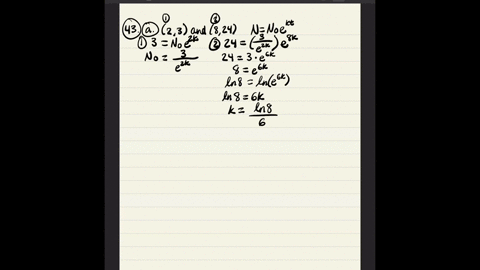 ① ②
43. a. (2,3) and (8,24) N=N₀e^{kt}
① 3 = N₀e^{2k}
N₀ = 3/e^{2k}
② 24 = (3/e^{2k})e^{8k}
24 = 3·e^{6k}
8 = e^{6k}
ln8 = ln(e^{6k})
ln8 = 6k
k = ln8/6